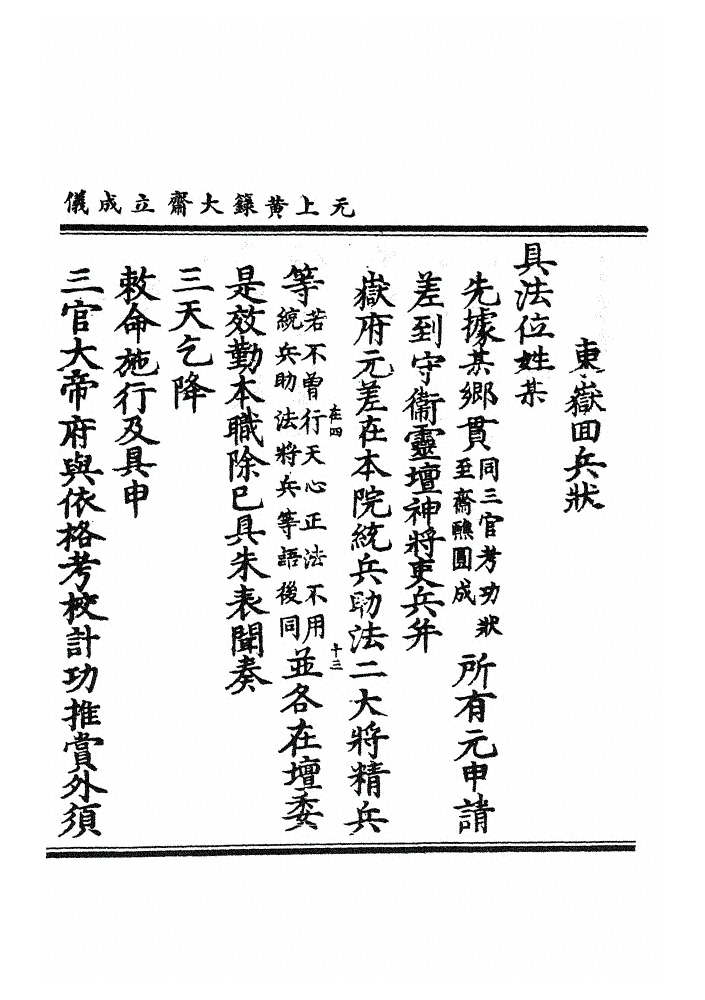 元上黄籙大齋立成儀
東嶽回兵狀
具法位姓某
先據某鄉貫同三官考功狀至齋醮圓成所有元申請
差到守衞靈壇神將吏兵幷
嶽府元差在本院統兵助法二大將精兵
等若不曾行天心正法不用統兵助法將兵等語後同並各在壇委
在四
十三
是效勤本職除已具朱表聞奏
三天乞降
敕命施行及具申
三官大帝府與依格考校計功推賞外須